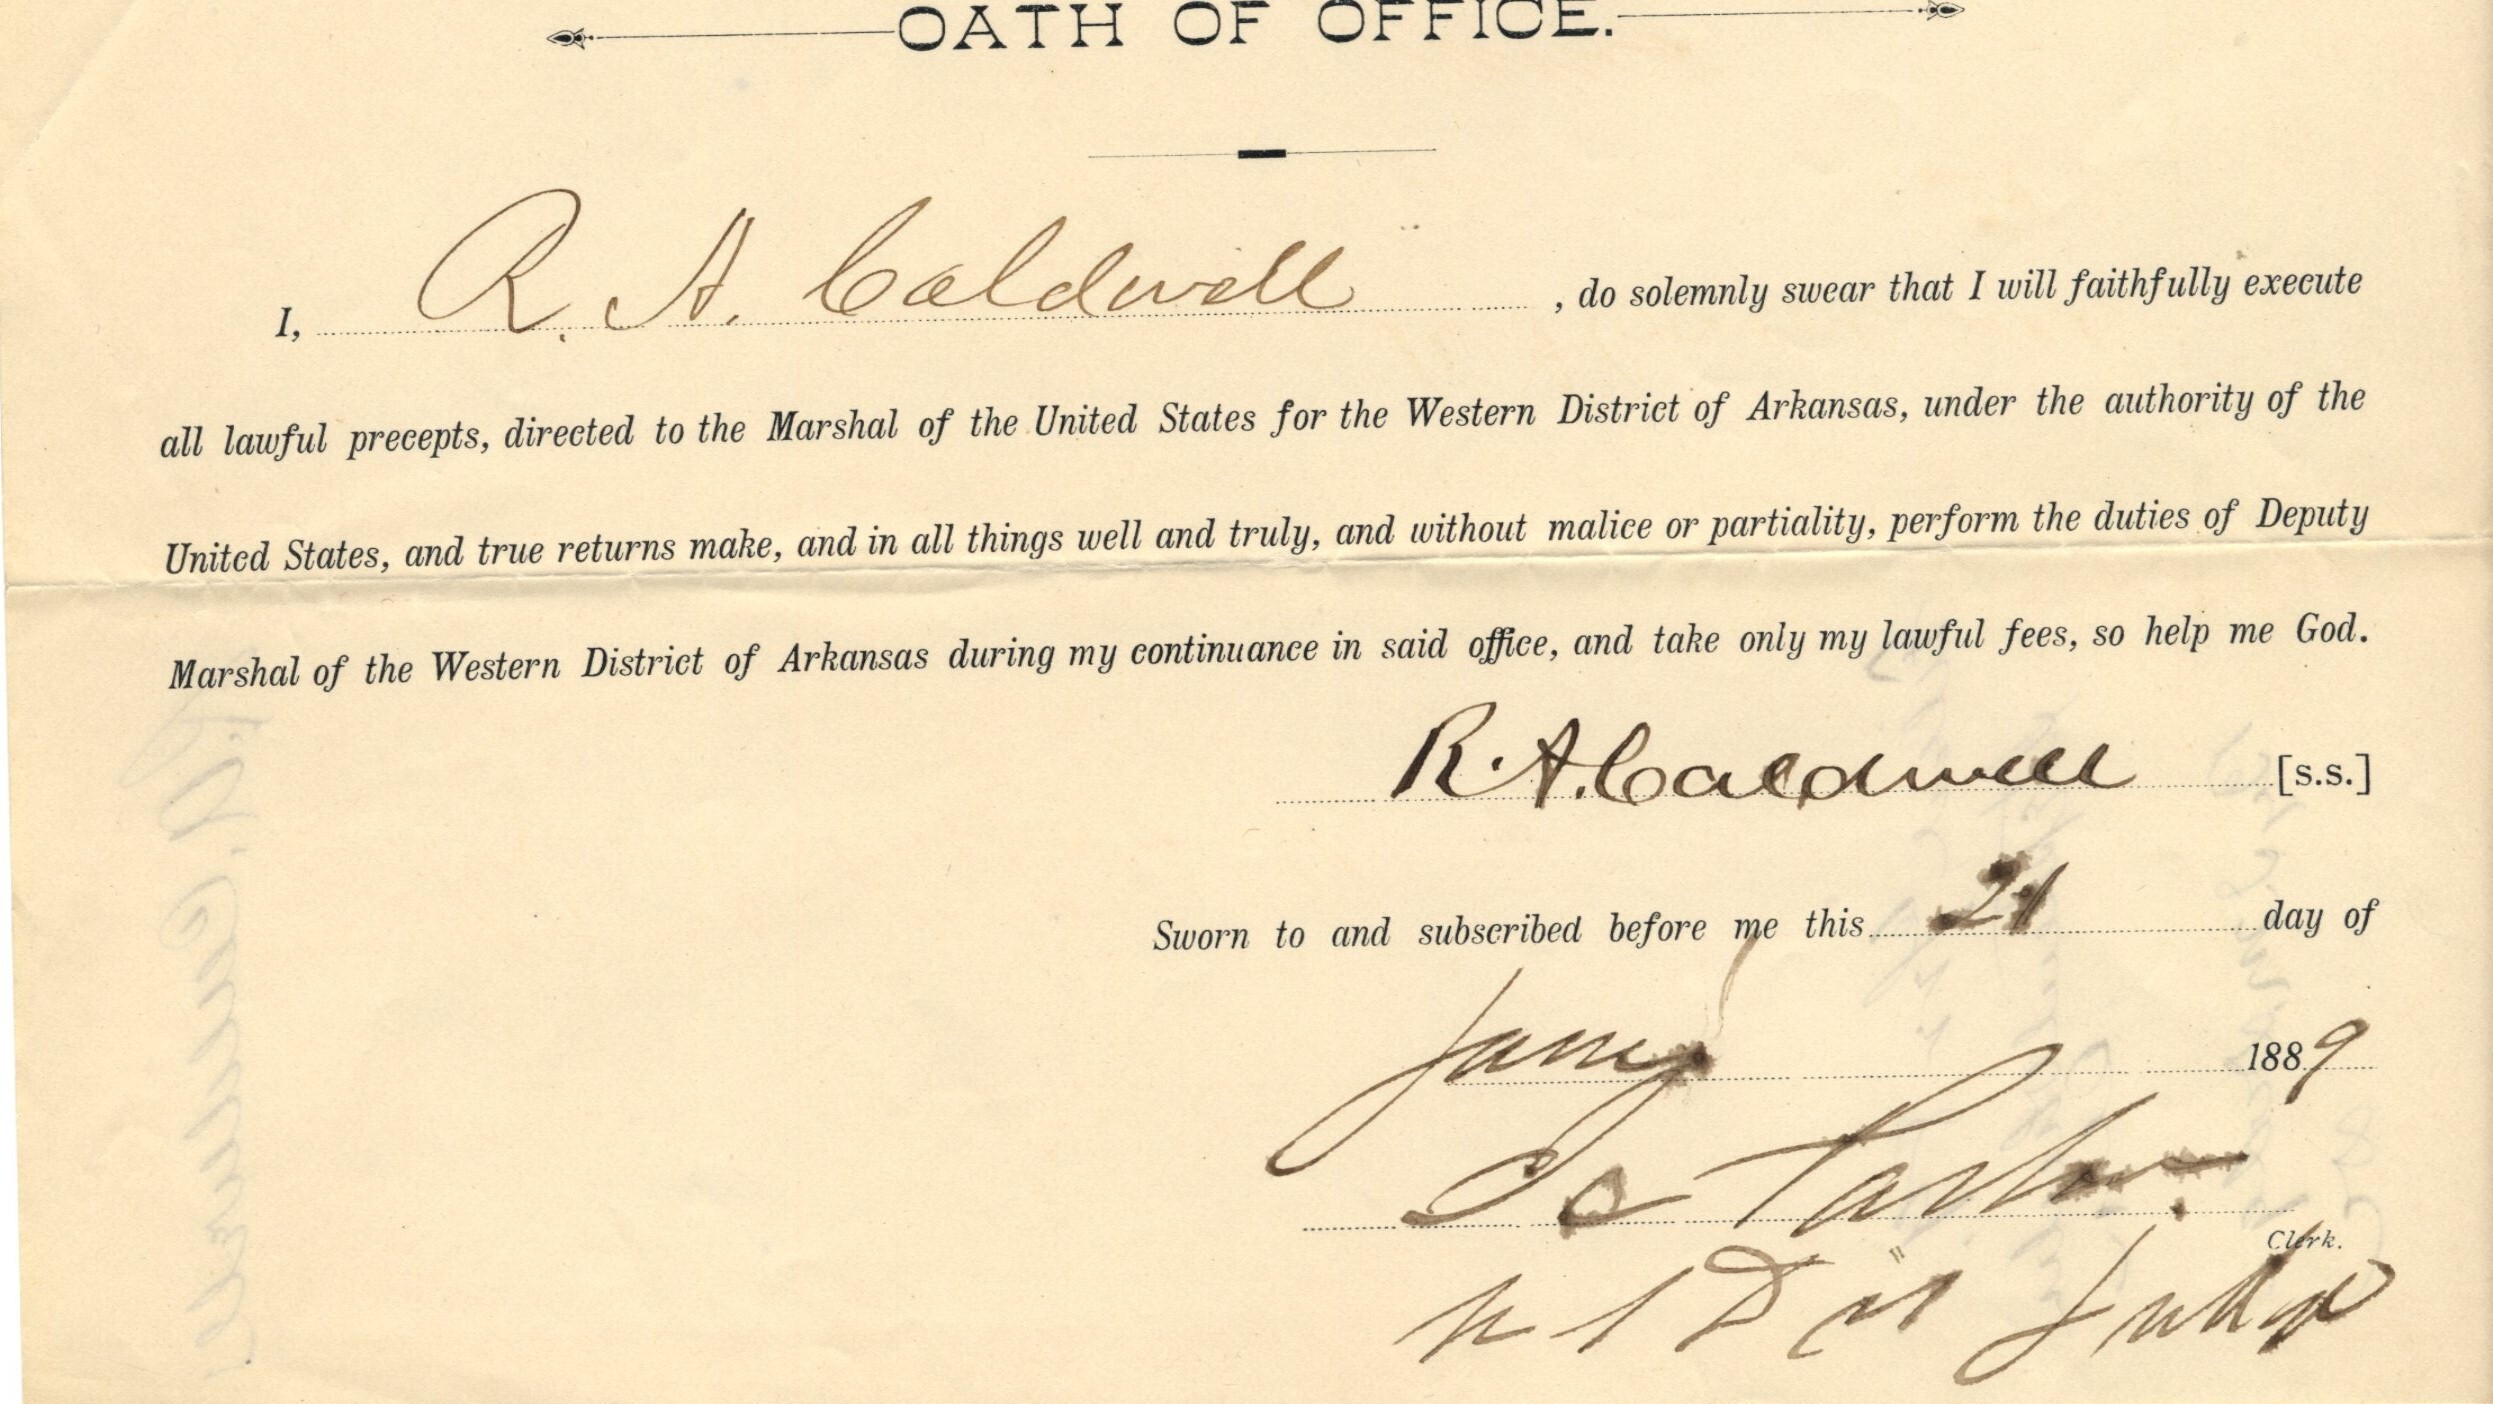 OATH OF OFFICE.
I, R. A. Caldwell, do solemnly swear that I will faithfully execute
all lawful precepts, directed to the Marshal of the United States for the Western District of Arkansas, under the authority of the
United States, and true returns make, and in all things well and truly, and without malice or partiality, perform the duties of Deputy
Marshal of the Western District of Arkansas during my continuance in said office, and take only my lawful fees, so help me God.
R. A. Caldwell [s.s.]
Sworn to and subscribed before me this 21 day of
Jany 1889
I C Parker
Clerk.
U S Dist Judge